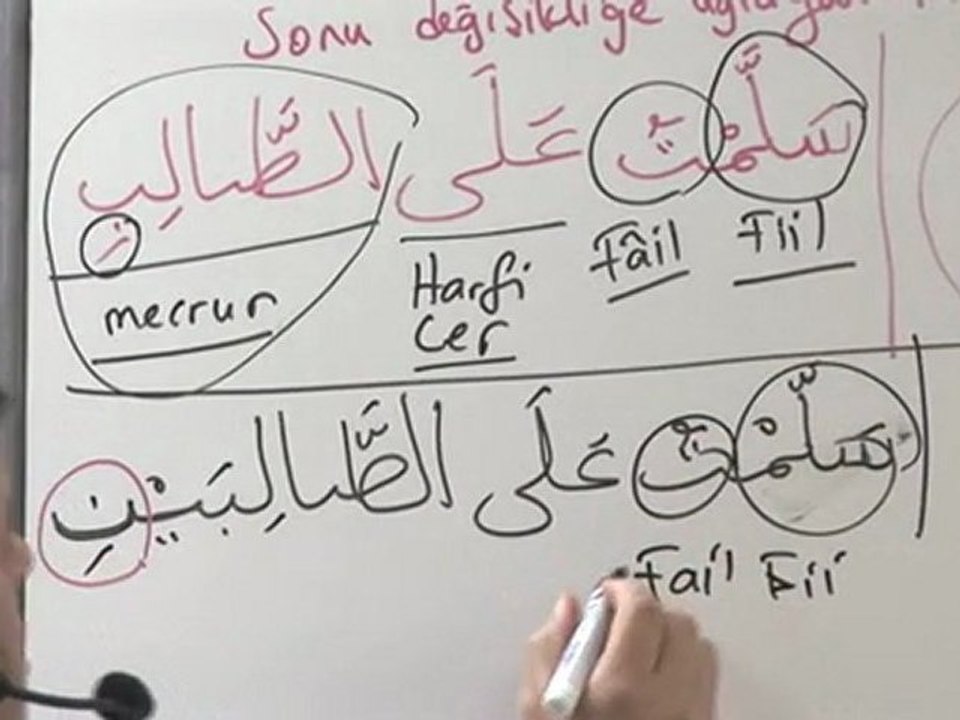 Sonu değişikliğe
سَلَّمْتُ عَلَى الطَّالِبِ
Fiil
Fâil
Harfi Cer
mecrur
سَلَّمْتُ عَلَى الطَّالِبَيْنِ
Fail Fii